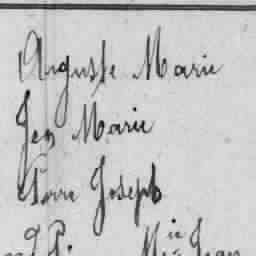 Auguste Marie
Jes Marie
Pierre Joseph
Mie Jean